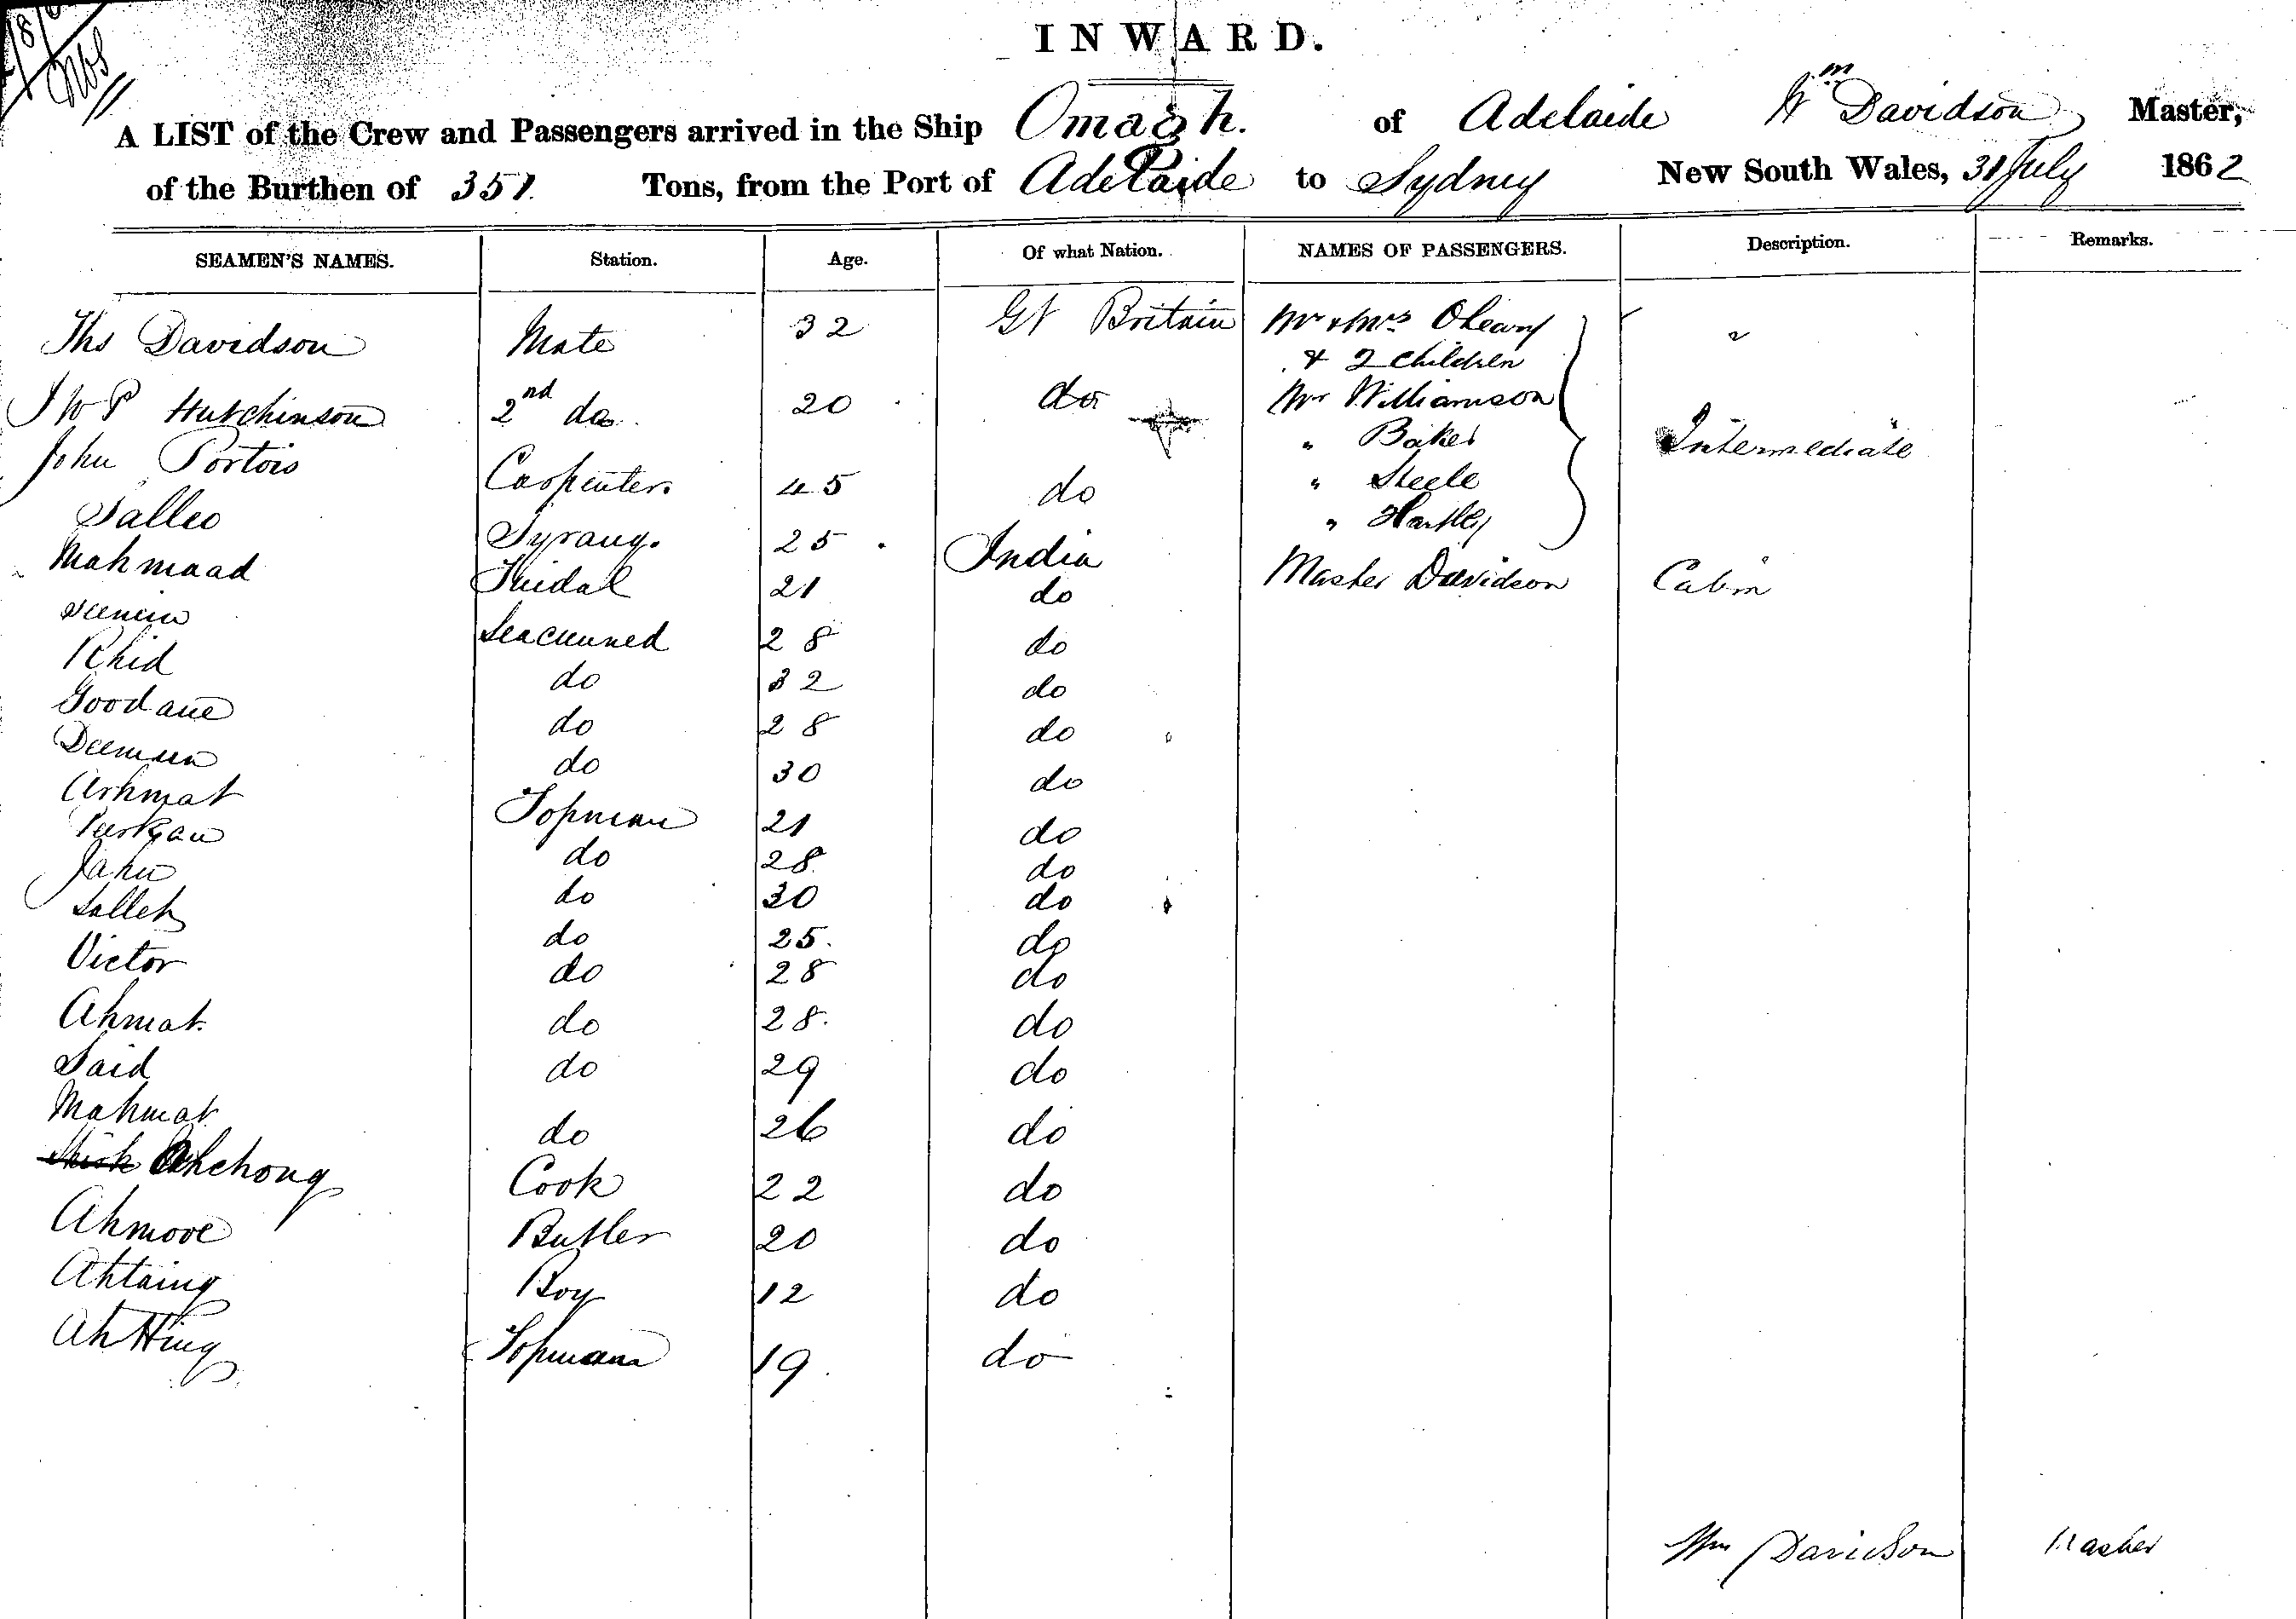 INWARD.
A LIST of the Crew and Passengers arrived in the Ship Omagh. of Adelaide Wm Davidson Master,
of the Burthen of 351. Tons, from the Port of Adelaide to Sydney New South Wales, 31 July 1862
SEAMEN'S NAMES. Station. Age. Of what Nation. NAMES OF PASSENGERS. Description. Remarks.
Ths Davidson Mate 32 Gt Britain Mr & Mrs OLeary
& 2 children
J W P Hutchinson 2nd do 20 do Mr Williamson
" Baker Intermediate
John Portois Carpenter 45 do " Steele
" Hartley
Salleo Syrang. 25 India
Mahmaad 21 do Master Davidson Cabin
Seacunned 28 do
Rhid do 32 do
Goodane do 28 do
Deemun do 30 do
Arhmat Topman 21 do
do 28 do
Jahu do 30 do
Salleh do 25. do
Victor do 28 do
Ahmat. do 28. do
Said do 29 do
Mahmat do 26 do
Ahchong Cook 22 do
Ahmove Butler 20 do
Ahtaing Boy 12 do
Ah Hing Topman 19. do
Wm Davidson Master